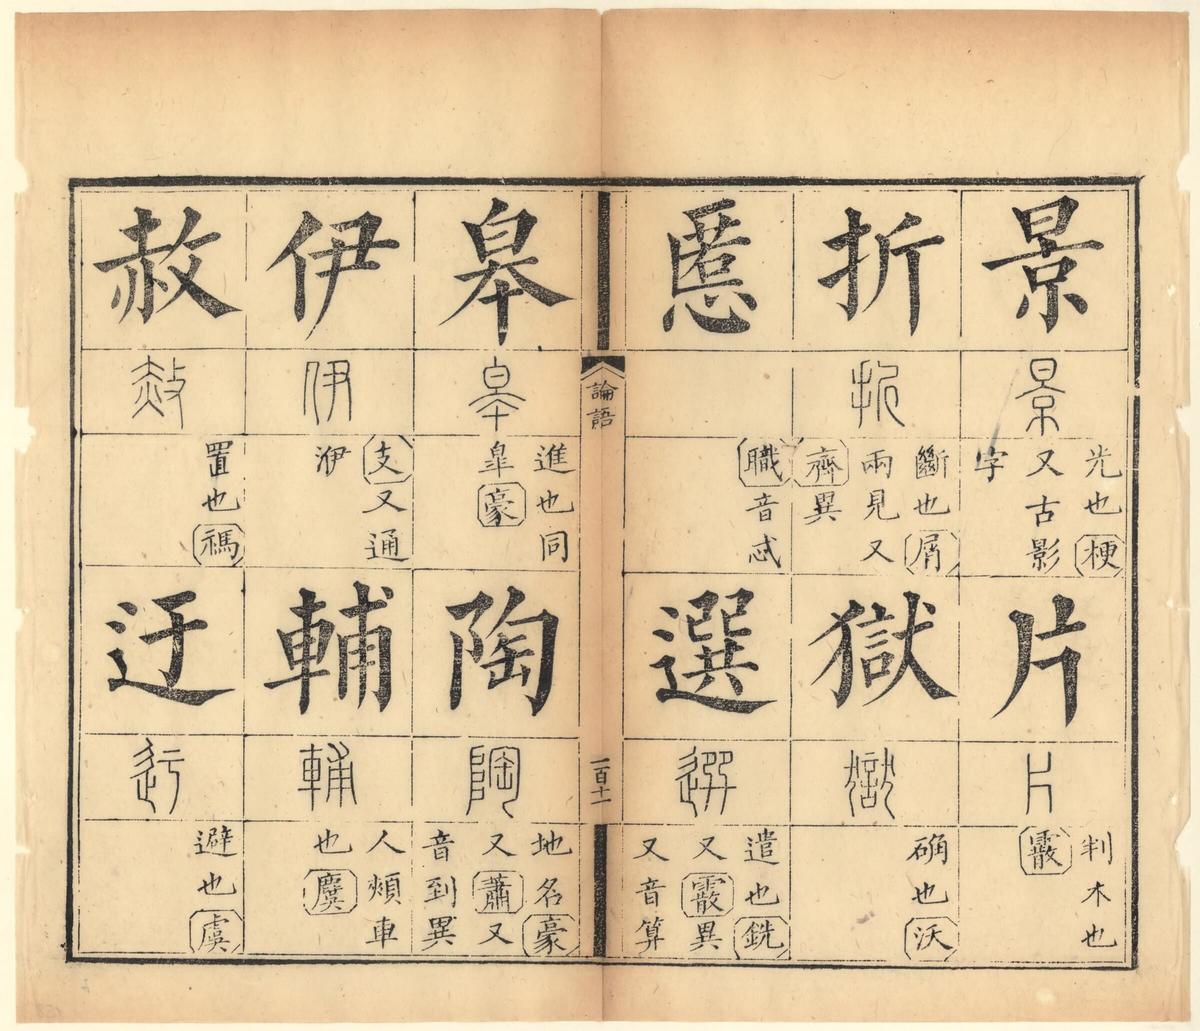 景
景
光也梗
又古影
字
片
片
判木也
霰
折
折
斷也屑
兩見又
齊異
獄
獄
确也沃
慝
職音忒
選
選
遣也銑
又霰異
又音算
論語
一百十一
皋
皋
進也同
皐豪
陶
陶
地名豪
又蕭又
音到異
伊
伊
支又通
洢
輔
輔
人頰車
也麌
赦
赦
置也禡
迂
迂
避也虞